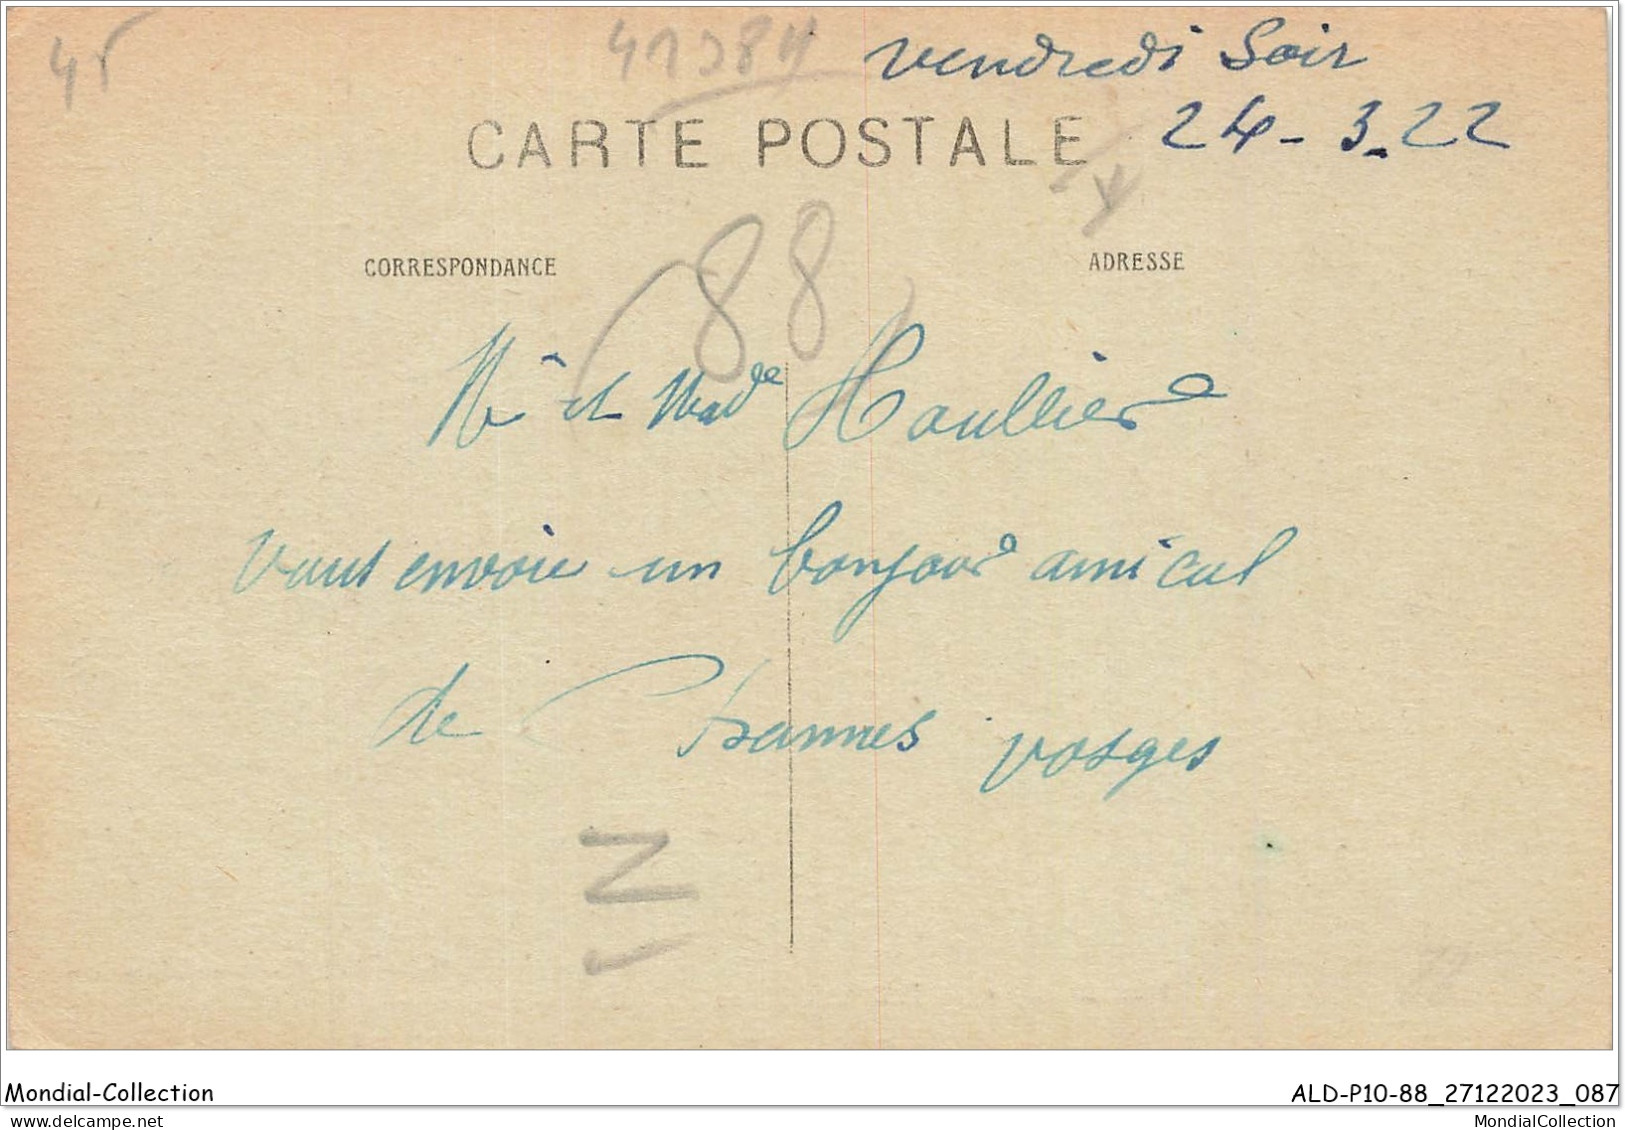 45
vendredi Soir
CARTE POSTALE
24-3-22
88
CORRESPONDANCE
ADRESSE
Mr et Made Houllier
vous envoie un bonjour amical
de Charmes vosges
Mondial-Collection
ALD-P10-88_27122023_087
www.delcampe.net
MondialCollection